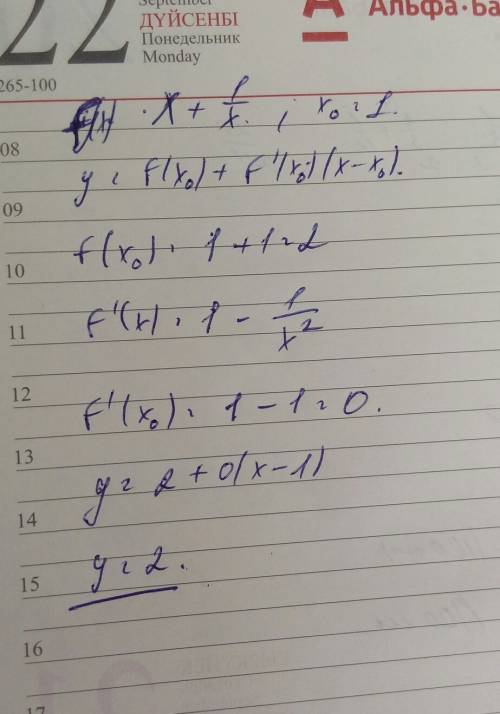 September
22
ДҮЙСЕНБІ
Понедельник
Monday
Альфа·Ба
265-100
f(x) = x + 1/x ; x₀ = 1.
08
y = f(x₀) + f'(x₀)(x-x₀).
09
f(x₀) = 1+1=2
10
f'(x) = 1 - 1/x²
11
12
f'(x₀) = 1-1=0.
13
y = 2 + 0(x-1)
14
y = 2.
15
16
17